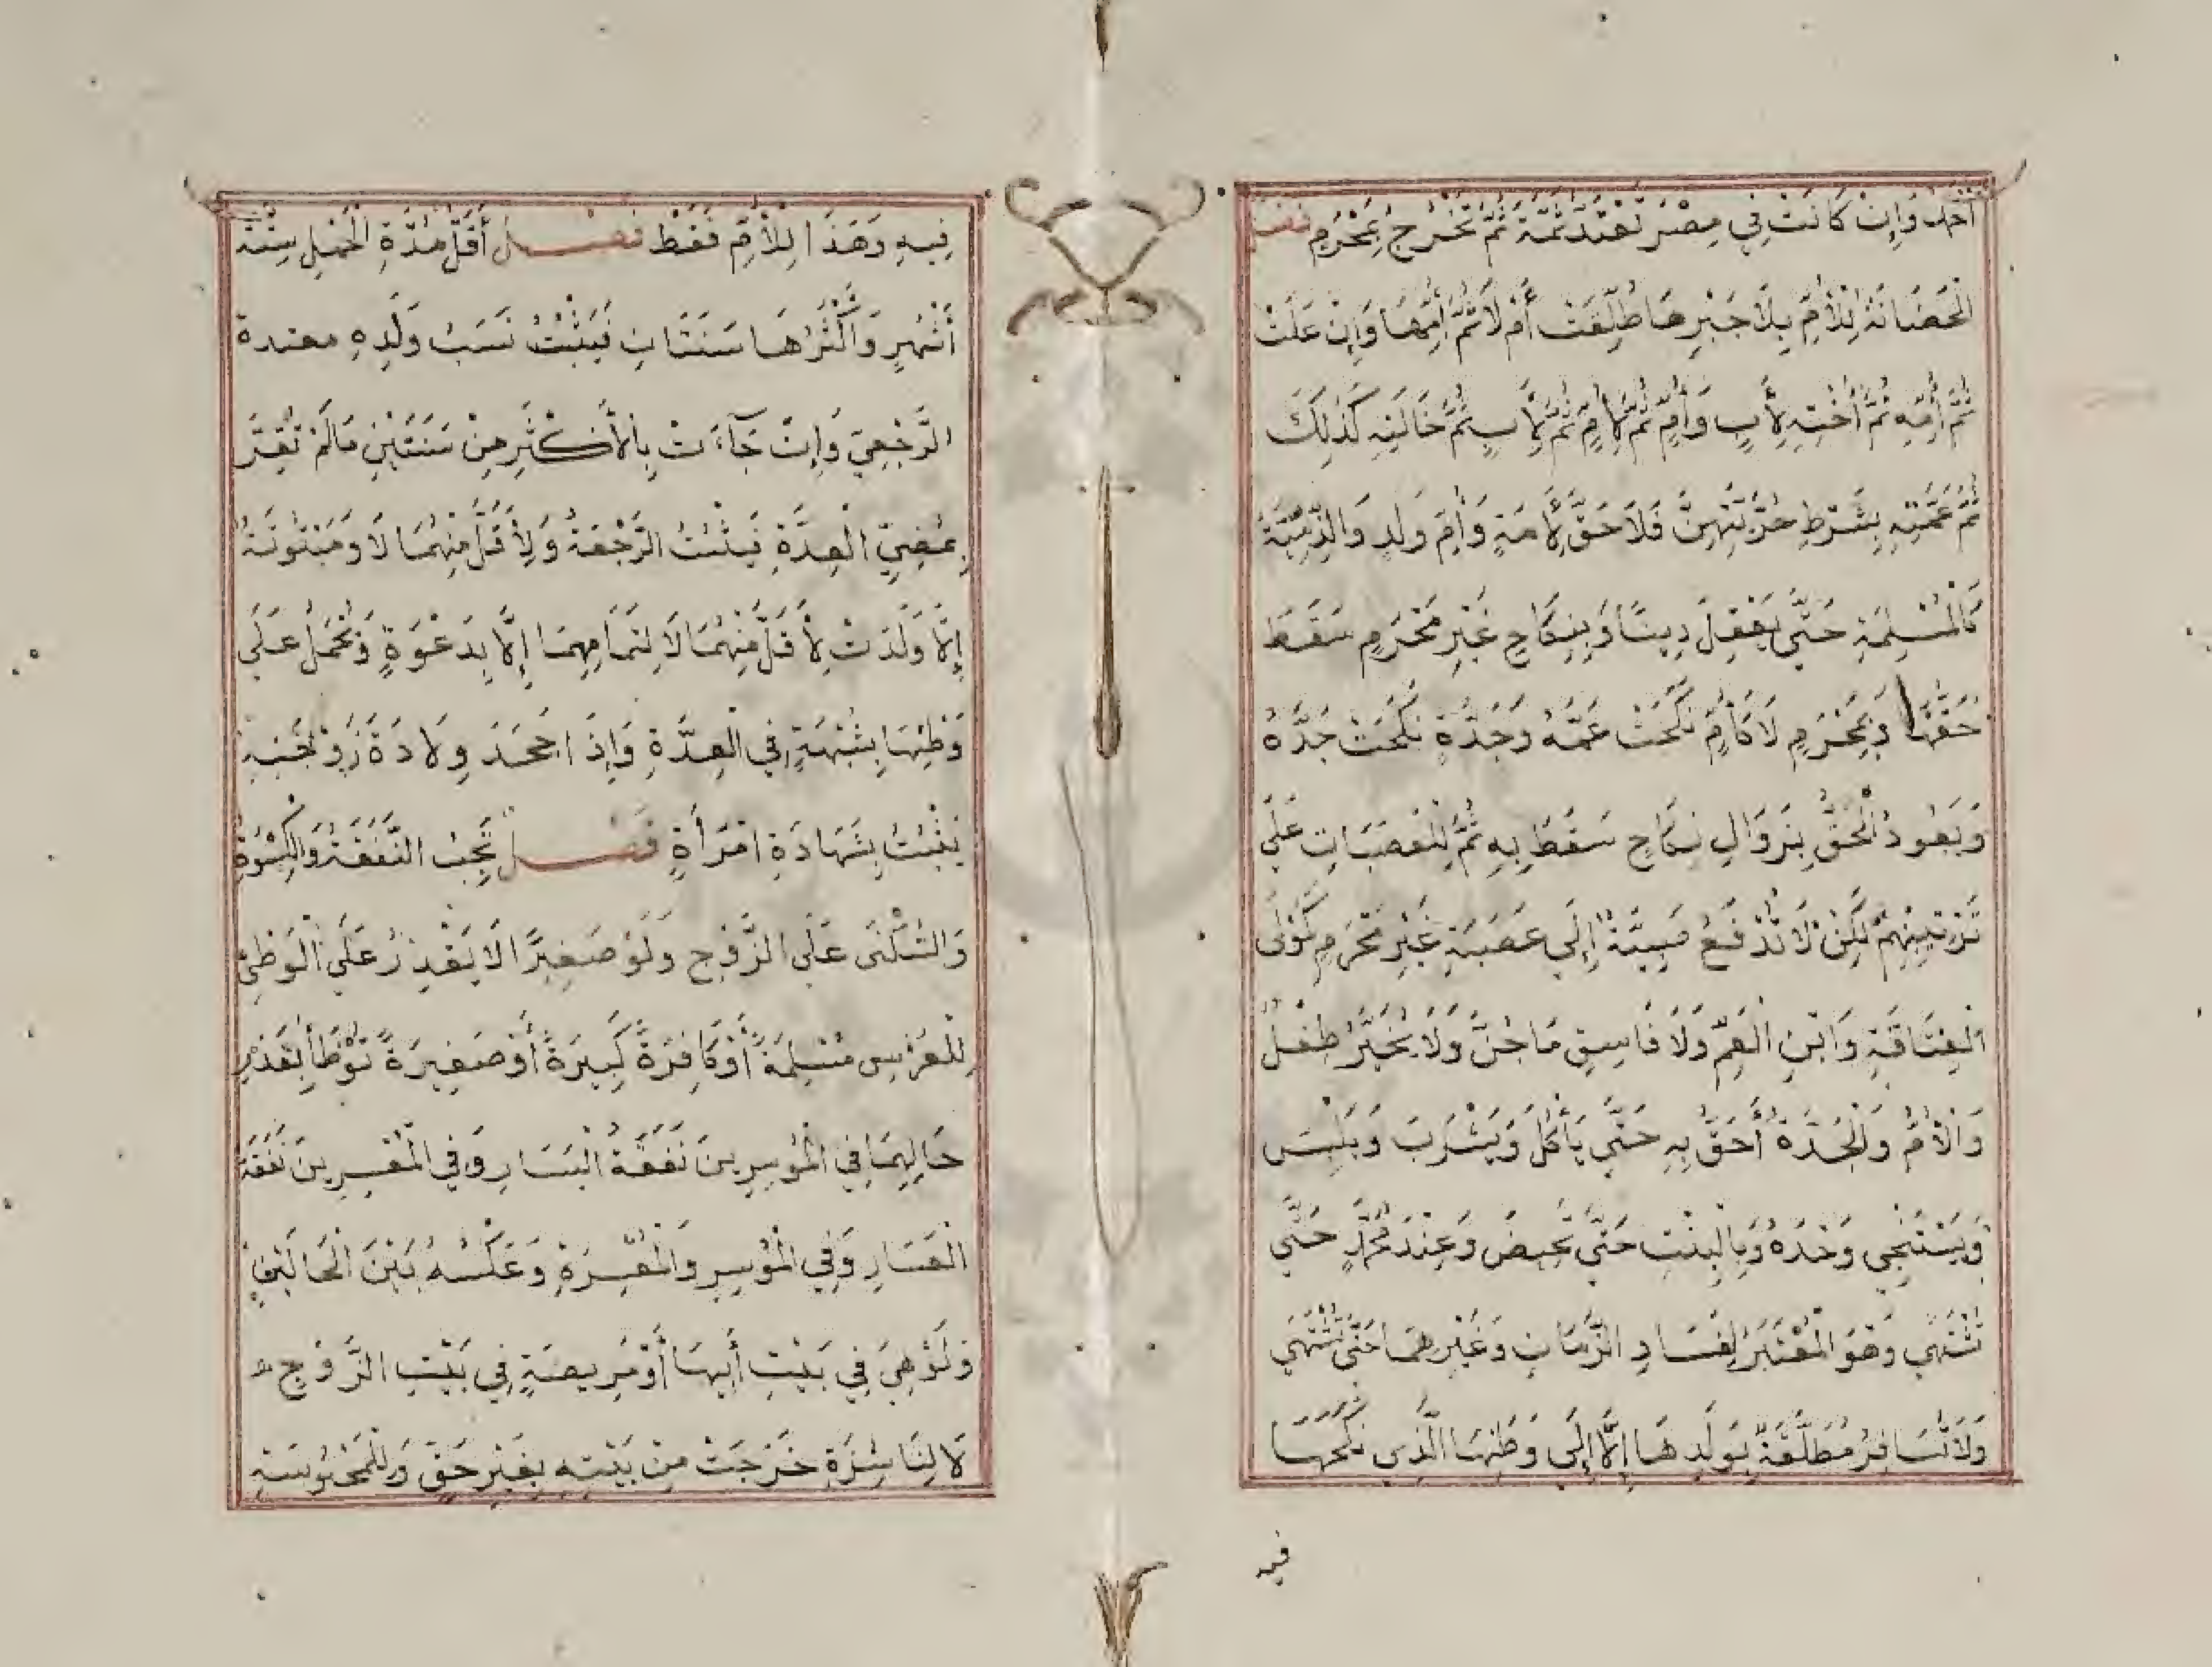 أَحَبَّ وَإِنْ كَانَتْ فِي مِصْرَ تَعْتَدُّ ثَمَّةَ ثُمَّ تَخْرُجُ بِمَحْرَمٍ فصل
الْحَضَانَةُ لِلْأُمِّ بِلَا جَبْرِهَا طُلِّقَتْ أَمْ لَا ثُمَّ أُمِّهَا وَإِنْ عَلَتْ
ثُمَّ أُمِّهِ ثُمَّ أُخْتِهِ لِأَبٍ وَأُمٍّ ثُمَّ لِأُمٍّ ثُمَّ لِأَبٍ ثُمَّ خَالَتِهِ كَذَلِكَ
ثُمَّ عَمَّتِهِ بِشَرْطِ حُرِّيَّتِهِنَّ فَلَا حَقَّ لِأَمَةٍ وَأُمِّ وَلَدٍ وَالذِّمِّيَّةُ
كَالْمُسْلِمَةِ حَتَّى يَعْقِلَ دِينًا وَبِنِكَاحِ غَيْرِ مَحْرَمٍ سَقَطَ
حَقُّهَا وَبِمَحْرَمٍ لَا كَأُمٍّ نَكَحَتْ عَمَّهُ وَجَدَّةٍ نَكَحَتْ جَدَّهُ
وَيَعُودُ الْحَقُّ بِزَوَالِ نِكَاحٍ سَقَطَ بِهِ ثُمَّ لِلْعَصَبَاتِ عَلَى
تَرْتِيبِهِمْ لَكِنْ لَا تُدْفَعُ صَبِيَّةٌ إِلَى عَصَبَةٍ غَيْرِ مَحْرَمٍ كَمَوْلَى
الْعِتَاقَةِ وَابْنِ الْعَمِّ وَلَا فَاسِقٍ مَاجِنٍ وَلَا يُخَيَّرُ طِفْلٌ
وَالْأُمُّ وَالْجَدَّةُ أَحَقُّ بِهِ حَتَّى يَأْكُلَ وَيَشْرَبَ وَيَلْبَسَ
وَيَسْتَنْجِي وَحْدَهُ وَبِالْبِنْتِ حَتَّى تَحِيضَ وَعِنْدَ مُحَمَّدٍ حَتَّى
تُشْتَهَى وَهُوَ الْمُعْتَبَرُ لِفَسَادِ الزَّمَانِ وَغَيْرِهِمَا حَتَّى تُشْتَهَى
وَلَا تُسَافِرُ مُطَلَّقَةٌ بِوَلَدِهَا إِلَّا إِلَى وَطَنِهَا الَّذِي نَكَحَهَا
فيه
فِيهِ وَهَذَا لِلْأُمِّ فَقَطْ فصل أَقَلُّ مُدَّةِ الْحَمْلِ سِتَّةُ
أَشْهُرٍ وَأَكْثَرُهَا سَنَتَانِ فَيَثْبُتُ نَسَبُ وَلَدِهِ معتدة
الرَّجْعِيِّ وَإِنْ جَآءَتْ بِالْأَكْثَرِ مِنْ سَنَتَيْنِ مَا لَمْ تُقِرَّ
بِمُضِيِّ الْعِدَّةِ فَيَثْبُتُ الرَّجْعَةُ وَلِأَقَلَّ مِنْهُمَا لَا وَمَبْتُوتَةُ
إِلَّا وَلَدَتْ لِأَقَلَّ مِنْهُمَا لَا لِتَمَامِهِمَا إِلَّا بِدَعْوَةٍ وَتُحْمَلُ عَلَى
وَطْئِهَا بِشُبْهَةٍ فِي الْعِدَّةِ وَإِذَا جَحَدَ وِلَادَةَ زَوْجَتِهِ
يَثْبُتُ بِشَهَادَةِ امْرَأَةٍ فصل تَجِبُ النَّفَقَةُ وَالْكِسْوَةُ
وَالسُّكْنَى عَلَى الزَّوْجِ وَلَوْ صَغِيرًا لَا يَقْدِرُ عَلَى الْوَطْئِ
لِلْعِرْسِ مُسْلِمَةً أَوْ كَافِرَةً كَبِيرَةً أَوْ صَغِيرَةً تُوطَأُ بِقَدْرِ
حَالِهِمَا فِي الْمُوسِرِينَ نَفَقَةُ الْيَسَارِ وَفِي الْمُعْسِرِينَ نَفَقَةُ
الْعَسَارِ وَفِي الْمُوسِرِ وَالْمُعْسِرَةِ وَعَكْسُهُ بَيْنَ الْحَالَيْنِ
وَلَوْ هِيَ فِي بَيْتِ أَبِيهَا أَوْ مَرِيضَةٍ فِي بَيْتِ الزَّوْجِ
لَا لِنَاشِزَةٍ خَرَجَتْ مِنْ بَيْتِهِ بِغَيْرِ حَقٍّ وَلِلْمَحْبُوسَةِ